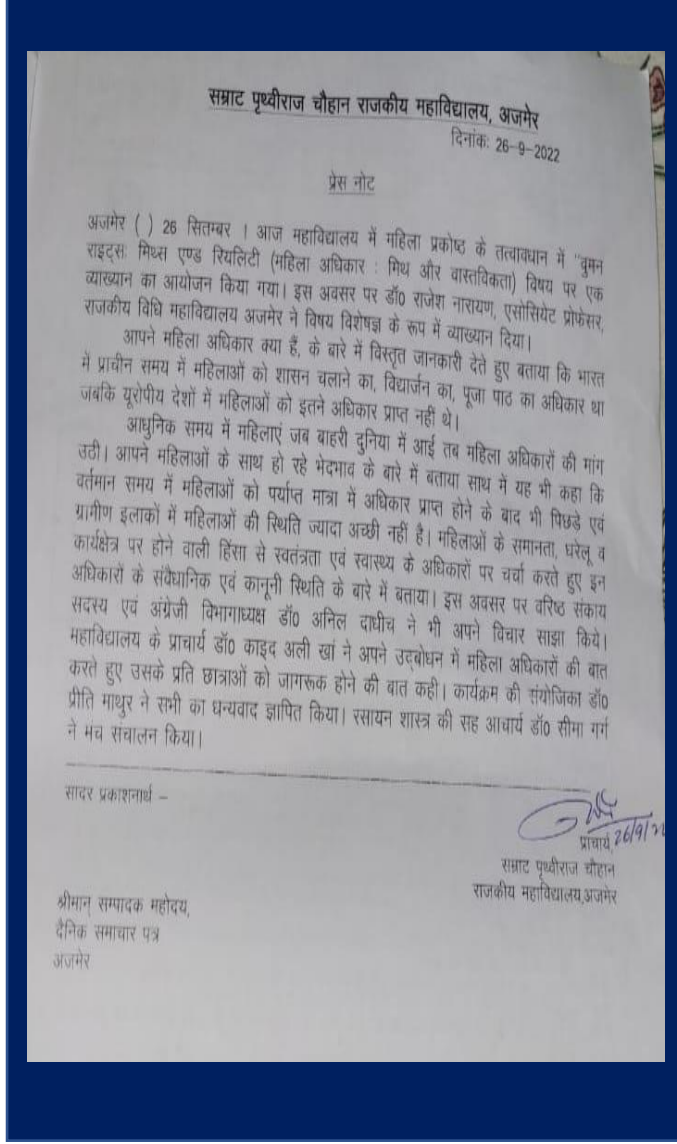 सम्राट पृथ्वीराज चौहान राजकीय महाविद्यालय, अजमेर
दिनांकः 26-9-2022
प्रेस नोट
अजमेर ( ) 26 सितम्बर । आज महाविद्यालय में महिला प्रकोष्ठ के तत्वावधान में "वुमन
राइट्सः मिथ्स एण्ड रियलिटी (महिला अधिकार : मिथ और वास्तविकता) विषय पर एक
व्याख्यान का आयोजन किया गया। इस अवसर पर डॉ0 राजेश नारायण, एसोसियेट प्रोफेसर,
राजकीय विधि महाविद्यालय अजमेर ने विषय विशेषज्ञ के रूप में व्याख्यान दिया।
आपने महिला अधिकार क्या हैं, के बारे में विस्तृत जानकारी देते हुए बताया कि भारत
में प्राचीन समय में महिलाओं को शासन चलाने का, विद्यार्जन का, पूजा पाठ का अधिकार था
जबकि यूरोपीय देशों में महिलाओं को इतने अधिकार प्राप्त नहीं थे।
आधुनिक समय में महिलाएं जब बाहरी दुनिया में आई तब महिला अधिकारों की मांग
उठी। आपने महिलाओं के साथ हो रहे भेदभाव के बारे में बताया साथ में यह भी कहा कि
वर्तमान समय में महिलाओं को पर्याप्त मात्रा में अधिकार प्राप्त होने के बाद भी पिछडे एवं
ग्रामीण इलाकों में महिलाओं की स्थिति ज्यादा अच्छी नहीं है। महिलाओं के समानता, घरेलू व
कार्यक्षेत्र पर होने वाली हिंसा से स्वतंत्रता एवं स्वास्थ्य के अधिकारों पर चर्चा करते हुए इन
अधिकारों के संवैधानिक एवं कानूनी स्थिति के बारे में बताया। इस अवसर पर वरिष्ठ संकाय
सदस्य एवं अंग्रेजी विभागाध्यक्ष डॉ0 अनिल दाधीच ने भी अपने विचार साझा किये।
महाविद्यालय के प्राचार्य डॉ0 काइद अली खां ने अपने उद्बोधन में महिला अधिकारों की बात
करते हुए उसके प्रति छात्राओं को जागरूक होने की बात कही। कार्यक्रम की संयोजिका डॉ0
प्रीति माथुर ने सभी का धन्यवाद ज्ञापित किया। रसायन शास्त्र की सह आचार्य डॉ0 सीमा गर्ग
ने मंच संचालन किया।
सादर प्रकाशनार्थ –
प्राचार्य 26/9/22
सम्राट पृथ्वीराज चौहान
राजकीय महाविद्यालय,अजमेर
श्रीमान् सम्पादक महोदय,
दैनिक समाचार पत्र
अजमेर